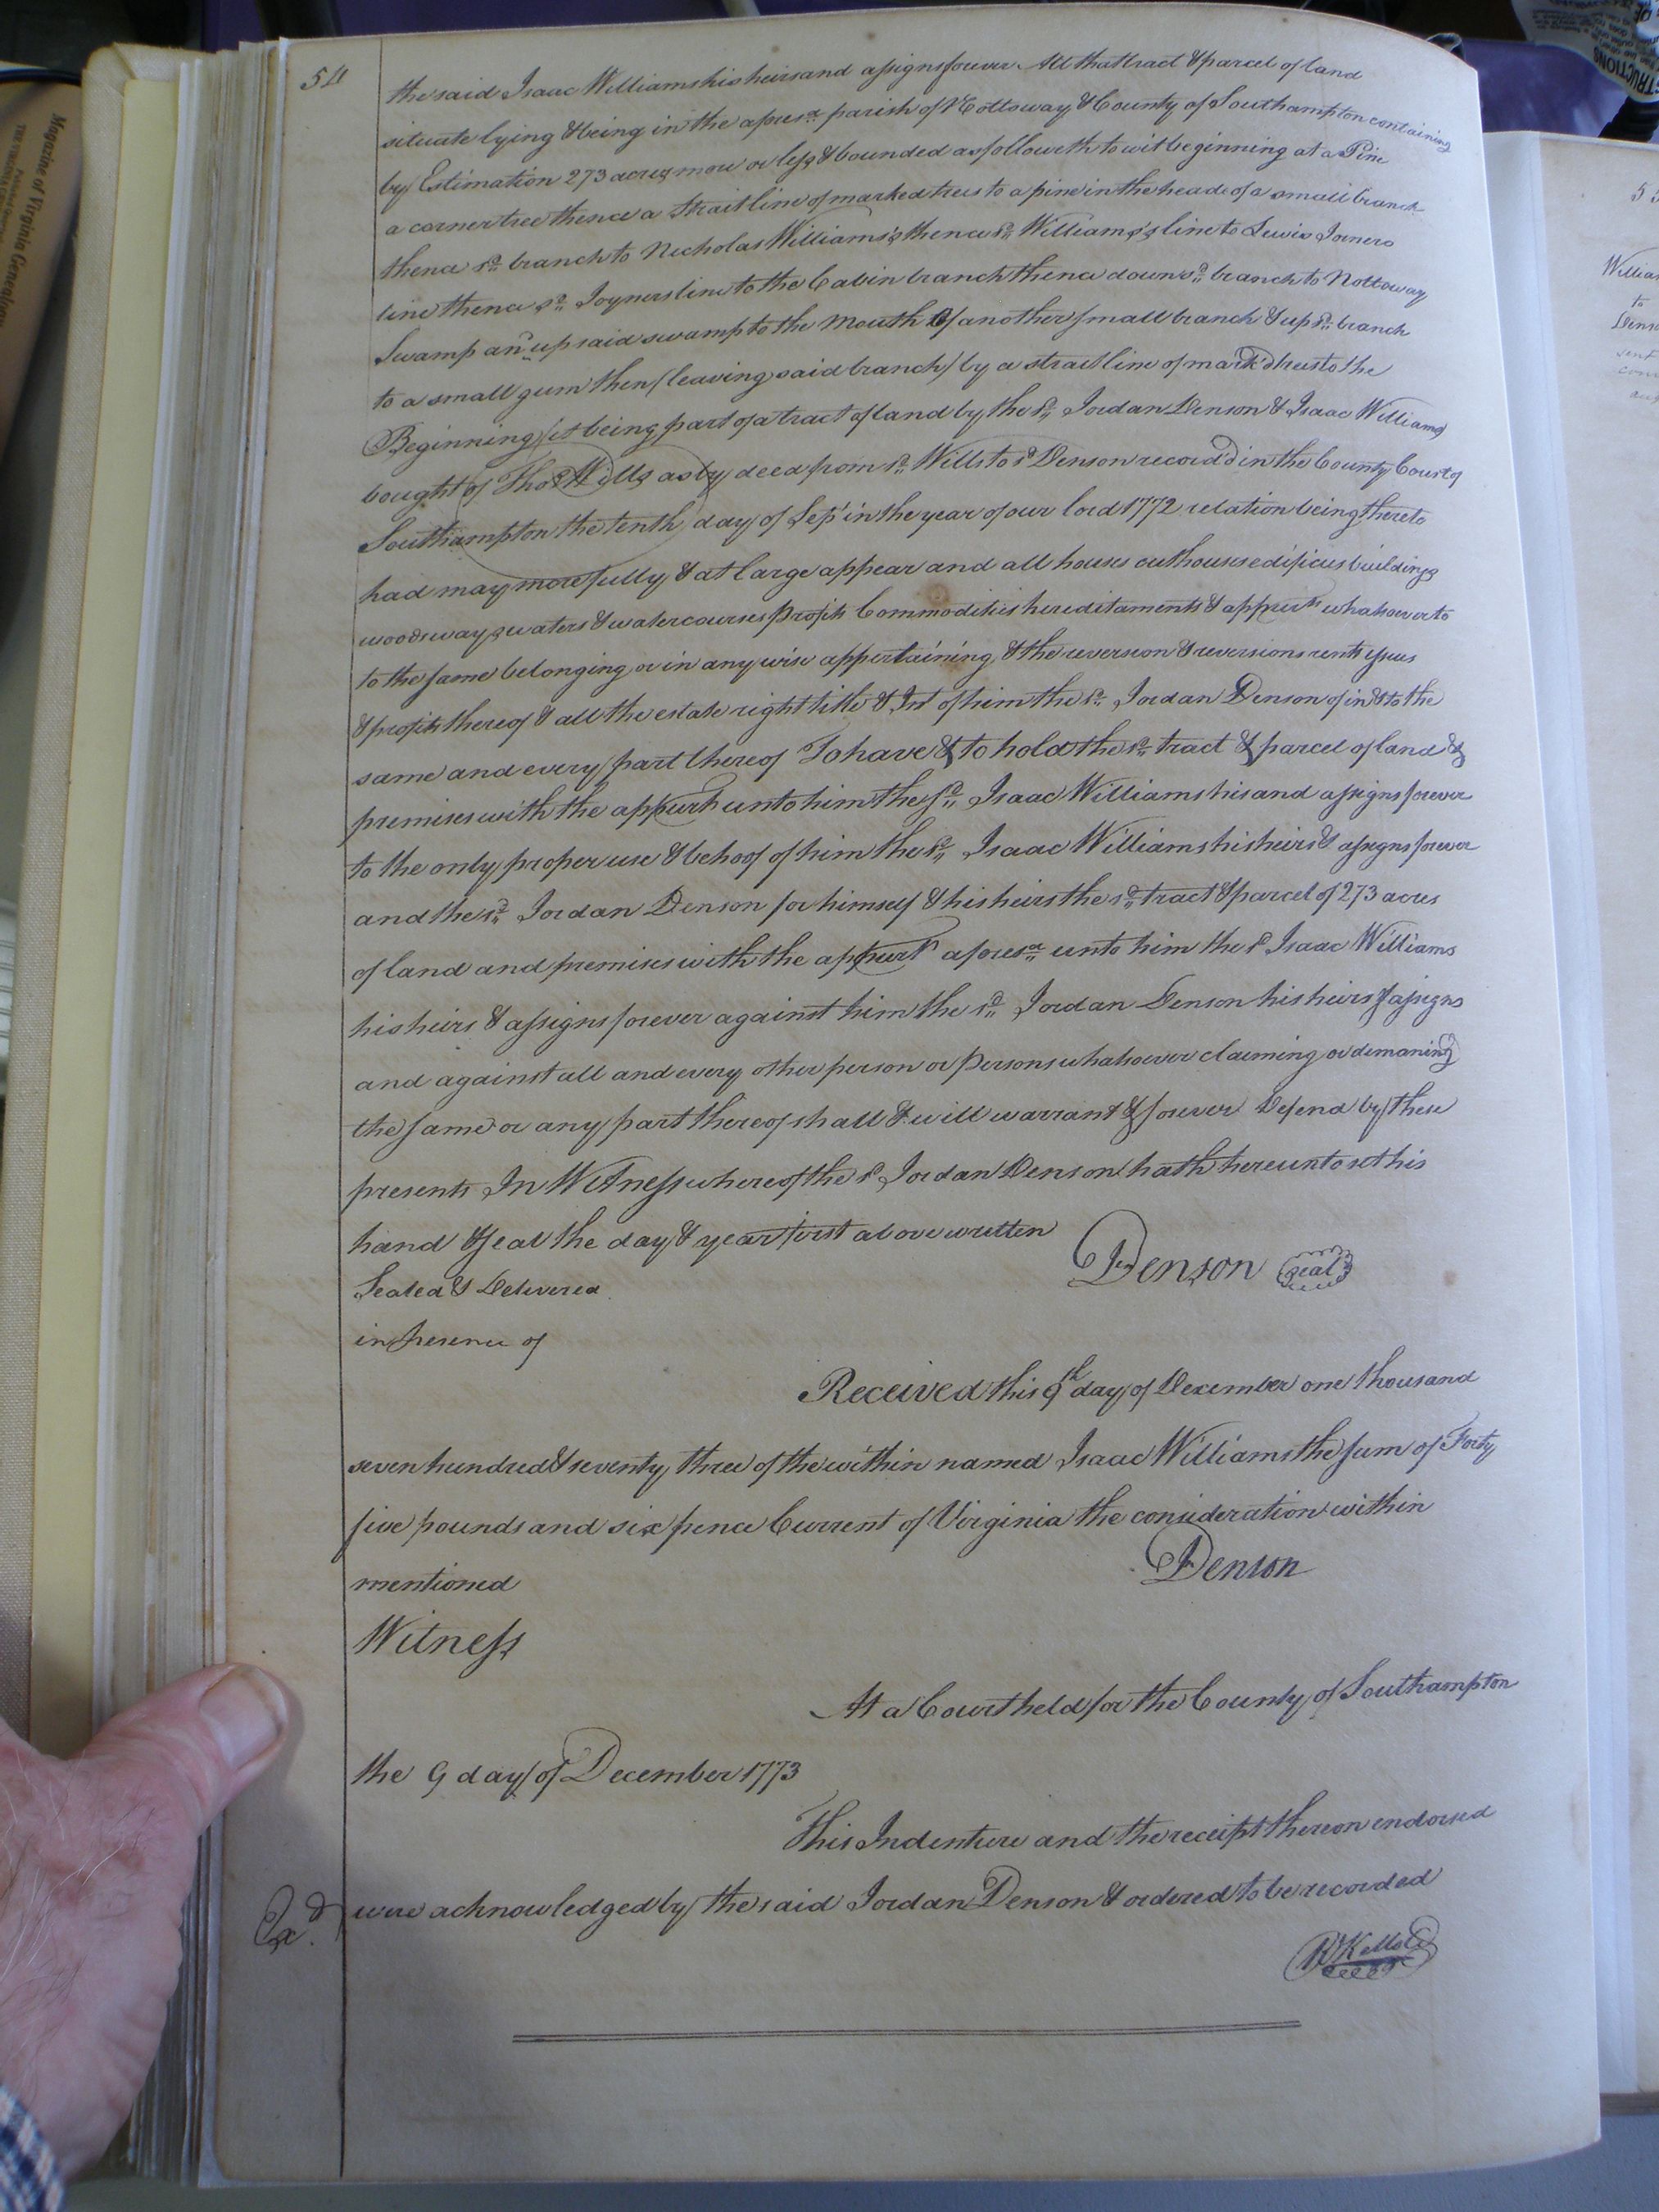 54
the said Isaac Williams his heirs and assigns forever All that tract & parcel of land
situate lying & being in the afores.d parish of Nottoway & County of Southampton containing
by Estimation 273 acres more or less & bounded as followeth to wit beginning at a Pine
a corner tree thence a Strait line of marked trees to a pine in the head of a small branch
thence sd. branch to Nicholas Williams's thence sd. Williams's line to Lewis Joiners
line thence sd. Joyners line to the Cabin branch thence down sd. branch to Nottoway
Swamp and up said swamp to the Mouth of another small branch & up sd. branch
to a small gum then (leaving said branch) by a strait line of mark'd trees to the
Beginning (it being part of a tract of land by the sd. Jordan Denson & Isaac Williams
bought of Thos. Wills as by deed from sd. Wills to sd. Denson record'd in the County Court of
Southampton the tenth day of Sept in the year of our lord 1772 relation being thereto
had may more fully & at large appear and all houses outhouses edifices buildings
woods ways waters & watercourses profits Commodities hereditaments & appurts whatsoever to
to the same belonging or in any wise appertaining & the reversion & reversions rents issues
& profits thereof & all the estate right title & Int of him the sd. Jordan Denson of in & to the
same and every part thereof To have & to hold the sd. tract & parcel of land &
premises with the appurts unto him the sd. Isaac Williams his and assigns forever
to the only proper use & behoof of him the sd. Isaac Williams his heirs & assigns forever
and the sd. Jordan Denson for himself & his heirs the sd. tract & parcel of 273 acres
of land and premises with the appurts aforesd. unto him the sd Isaac Williams
his heirs & assigns forever against him the sd. Jordan Denson his heirs & assigns
and against all and every other person or Persons whatsoever claiming or demaning
the same or any part thereof shall & will warrant & forever Defend by these
presents In Witness whereof the sd Jordan Denson hath hereunto set his
hand & seal the day & year first above written
Denson seal
Sealed & Delivered
in Presence of
Received this 9th day of December one thousand
seven hundred & seventy three of the within named Isaac Williams the sum of Forty
five pounds and six pence Current of Virginia the consideration within
mentioned
Denson
Witness
At a Court held for the County of Southampton
the 9 day of December 1773
This Indenture and the receipt thereon endorsed
Exd. were acknowledged by the said Jordan Denson & ordered to be recorded
Magazine of Virginia Genealogy
55
to